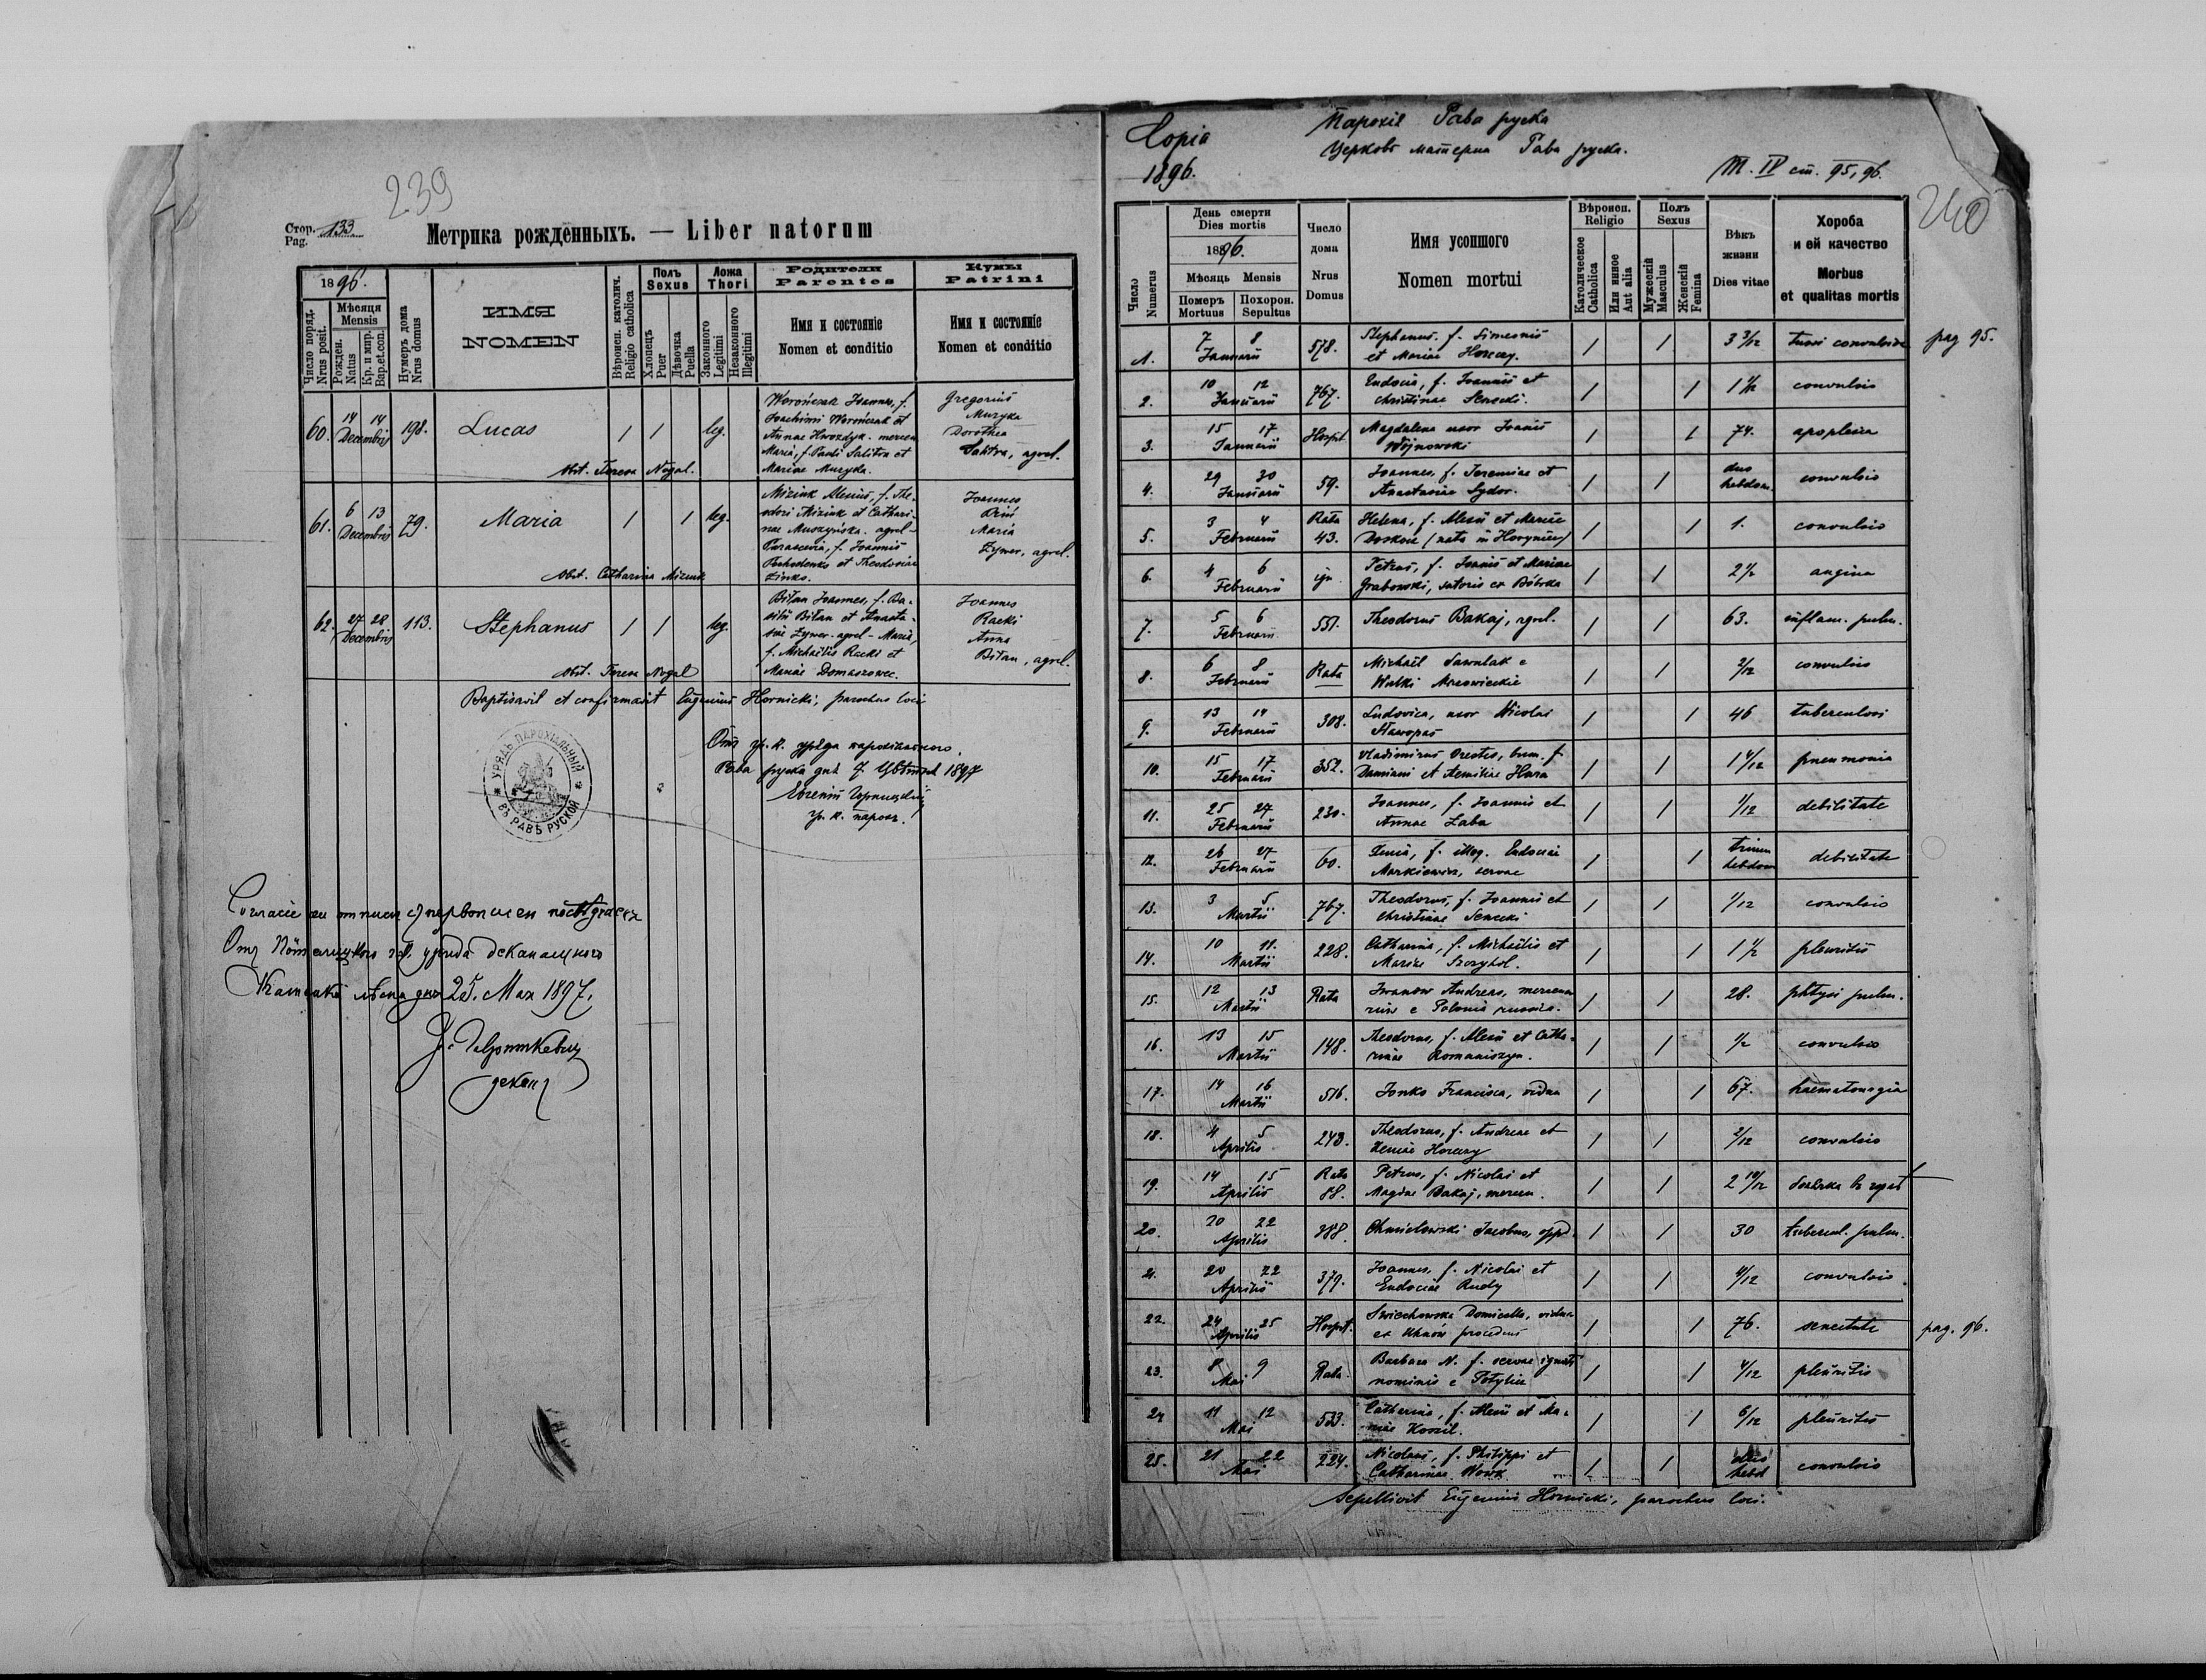 239
Стор. 133
Pag.
Метрика рожденныхъ. — Liber natorum
1896.
Число поряд.
Nrus posit.
Мѣсяця
Mensis
Рожден.
Natus
Кр. и мир.
Bap. et con.
Нумеръ дома
Nrus domus
ИМЯ
NOMEN
Вѣроисп. католич.
Religio catholica
Полъ
Sexus
Хлопецъ
Puer
Дѣвочка
Puella
Ложа
Thori
Законного
Legitimi
Незаконного
Illegitimi
Родители
Parentes
Имя и состоянiе
Nomen et conditio
Кумы
Patrini
Имя и состоянiе
Nomen et conditio
60. 14 14 Decembris 198. Lucas / / leg.
Worończak Joannes, f.
Joachimi Worończak et
Annae Hwozdyk. mercen
Maria, f. Pauli Salitra et
Mariae Muzyka.
Gregorius
Muzyka
Dorothea
Salitra, agrel.
Obst. Teresa Nogal.
61. 6 13 Decembris 79. Maria / / leg.
Mizink Alexius, f. The-
odori Mizink et Cathari-
nae Muszyńska. agrel-
Parascevia, f. Joannis
et Theodosiae
Zinko.
Joannes
Maria
Zywer, agrel.
Obst. Catharina Mizink
62. 27 28 Decembris 113. Stephanus / / leg.
Biłan Joannes, f. Ba-
silii Biłan et Anasta-
siae Zywer-agrel- Maria,
f. Michaëlis Racki et
Mariae Domaszowec.
Joannes
Racki
Anna
Biłan, agrel.
Obst. Teresa Nogal
Baptisavit et confirmavit Eugenius Hornicki, parochus loci
Отъ гр. к. уряда парохіального.
Рава руска дня 7. Цвѣтня 1897
Евгеній Горницкій
гр. к. парохъ.
УРЯДЪ ПАРОХІАЛЬНЫЙ
ВЪ РАВѢ РУСКОЙ
дня 25. Мая 1897.
деканъ
Copia
1896.
Парохія Рава руска
Церковь матерна Рава руска.
Т. IV ст. 95, 96.
240
Число
Numerus
День смерти
Dies mortis
1896.
Мѣсяць Mensis
Померъ
Mortuus
Похорон.
Sepultus
Число
дома
Nrus
Domus
Имя усопшого
Nomen mortui
Вѣроисп.
Religio
Католическое
Catholica
Или инное
Aut alia
Полъ
Sexus
Мужескій
Masculus
Женскій
Femina
Вѣкъ
жизни
Dies vitae
Хороба
и ей качество
Morbus
et qualitas mortis
1. 7 8 Januarii 578. Stephanus. f. Simeonis
et Mariae Horczy. / / 3 3/12 tussi convulsiva pag 95.
2. 10 12 Januarii 767. Eudocia, f. Joannis et
Christinae Senecki. / / 1 1/2 convulsio
3. 15 17 Januarii Hospit. Magdalena uxor Joannis
Wójnowski / / 74. apoplexia
4. 29 30 Januarii 59. Joannes, f. Jeremiae et
Anastasiae Sydor. / / duo
hebdom. convulsio
5. 3 4 Februarii Rata
43. Helena, f. Alexii et Mariae
Doskocz (nata in Horyniec) / / 1. convulsio
6. 4 6 Februarii Petrus, f. Joannis et Mariae
Grabowski, sutoris ex Bóbrka / / 2 1/2 angina
7. 5 6 Februarii 551. Theodorus Bakaj, agrel. / / 63. inflam. pulm.
8. 6 8 Februarii Rata Michaël Sawulak e
Wulki Mazowieckie / / 2/12 convulsio
9. 13 14 Februarii 308. Ludovica, uxor Nicolai
/ / 46 tuberculosi
10. 15 17 Februarii 352. Vladimirus Orestes, f.
Damiani et Aemiliae Hura / / 1 4/12 pneumonia
11. 25 27 Februarii 230. Joannes, f. Joannis et
Annae Łaba / / 1/12 debilitate
12. 26 27 Februarii 60. Xenia, f. illeg. Eudociae
Markiewicz, servae / / trium
hebdom debilitate
13. 3 5 Martii 767. Theodorus, f. Joannis et
Christinae Senecki / / 1/12 convulsio
14. 10 11. Martii 228. Catharina, f. Michaëlis et
Mariae Szczyhol. / / 1 1/2 pleuritis
15. 12 13 Martii Rata Iwanow Andreas, mercena
rius e Polonia russica. / / 28. phtysi pulm.
16. 13 15 Martii 148. Theodorus, f. Alexii et Catha-
rinae Romaniszyn. / / 1/2 convulsio
17. 14 16 Martii 516. Jonko Francisca, vidua / / 67. haematorrgia
18. 4 5 Aprilis 243. Theodorus, f. Andreae et
Xeniae Horczy / / 2/12 convulsio
19. 14 15 Aprilis Rata
88. Petrus, f. Nicolai et
Magdae Bakaj, mercen. / / 2 10/12
20. 20 22 Aprilis 388. Chmielowski Jacobus, opp. / / 30 tubercul. pulm.
21. 20 22 Aprilis 379. Joannes, f. Nicolai et
Eudociae Rudy / / 4/12 convulsio.
22. 24 25 Aprilis Hospit. Swiechowska Domicella, vidua
ex Uhnów procedens / / 76. senectute pag. 96.
23. 8 9 Mai Rata. Barbara N. f. servae ignoti
nominis e Potylicz / / 4/12 pleuritis
24 11 12 Mai 533. Catharina, f. Alexii et Ma-
riae Koszil. / / 6/12 pleuritis
25. 21 22 Mai 224. Nicolaus, f. Philippi et
Catharinae Wowk / / duo
hebd convulsio
Sepelivit Eugenius Hornicki, parochus loci.